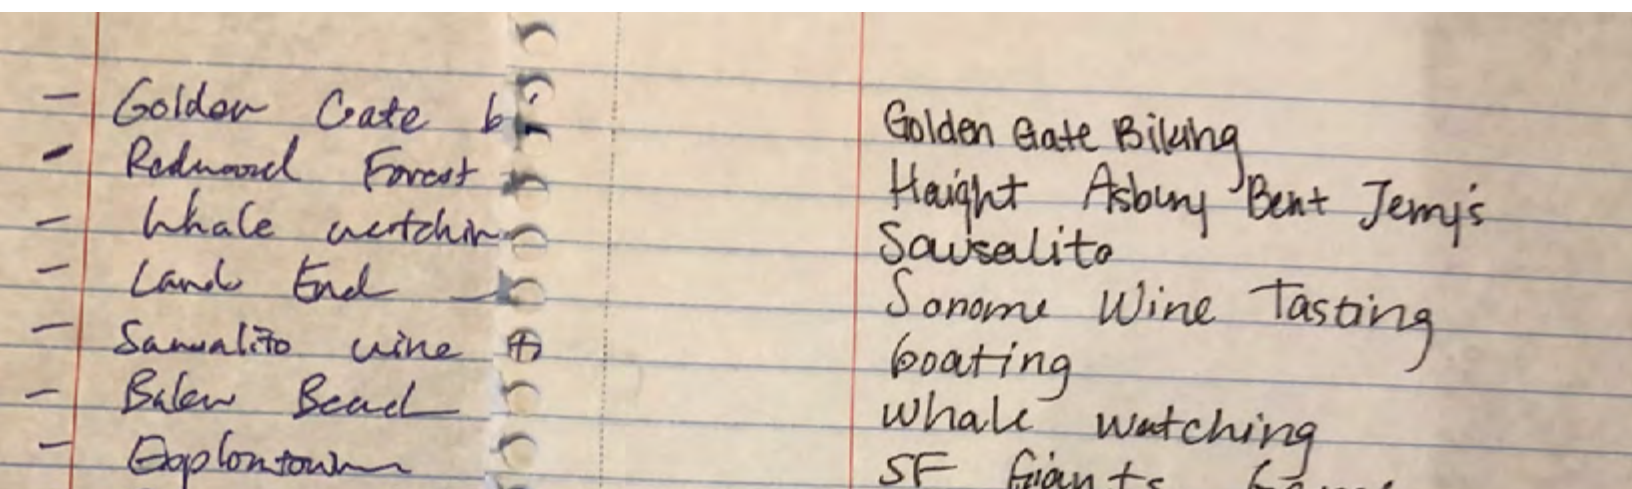 - Golden Gate bi
- Redwood Forest
- Whale watchin
- Lands End
- Sausalito wine
- Baker Beach
-
Golden Gate Biking
Height Asbury Bent Jerry's
Sausalito
Sonome Wine Tasting
boating
whale watching
SF Giants Game